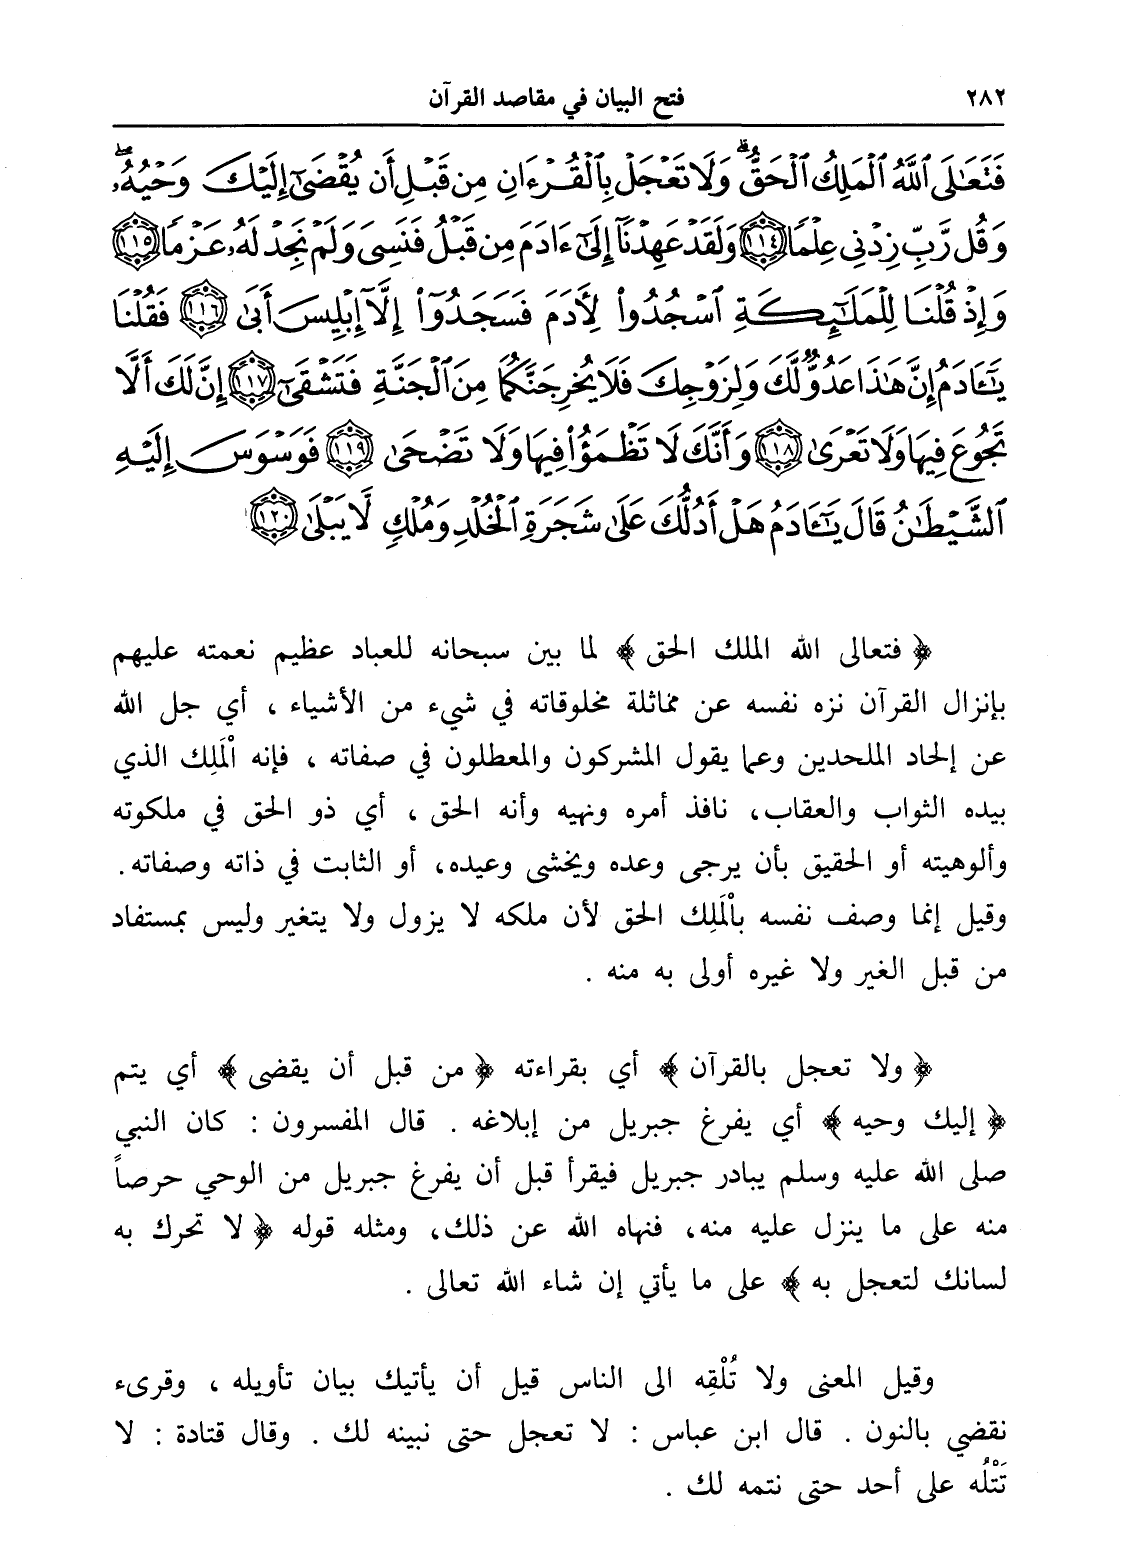 ٢٨٢ فتح البيان في مقاصد القرآن
فَتَعَـٰلَى ٱللَّهُ ٱلْمَلِكُ ٱلْحَقُّ ۗ وَلَا تَعْجَلْ بِٱلْقُرْءَانِ مِن قَبْلِ أَن يُقْضَىٰٓ إِلَيْكَ وَحْيُهُۥ ۖ
وَقُل رَّبِّ زِدْنِى عِلْمًا ١١٤ وَلَقَدْ عَهِدْنَآ إِلَىٰٓ ءَادَمَ مِن قَبْلُ فَنَسِىَ وَلَمْ نَجِدْ لَهُۥ عَزْمًا ١١٥
وَإِذْ قُلْنَا لِلْمَلَـٰٓئِكَةِ ٱسْجُدُوا۟ لِأَدَمَ فَسَجَدُوٓا۟ إِلَّآ إِبْلِيسَ أَبَىٰ ١١٦ فَقُلْنَا
يَـٰٓـَٔادَمُ إِنَّ هَـٰذَا عَدُوٌّ لَّكَ وَلِزَوْجِكَ فَلَا يُخْرِجَنَّكُمَا مِنَ ٱلْجَنَّةِ فَتَشْقَىٰٓ ١١٧ إِنَّ لَكَ أَلَّا
تَجُوعَ فِيهَا وَلَا تَعْرَىٰ ١١٨ وَأَنَّكَ لَا تَظْمَؤُا۟ فِيهَا وَلَا تَضْحَىٰ ١١٩ فَوَسْوَسَ إِلَيْهِ
ٱلشَّيْطَـٰنُ قَالَ يَـٰٓـَٔادَمُ هَلْ أَدُلُّكَ عَلَىٰ شَجَرَةِ ٱلْخُلْدِ وَمُلْكٍ لَّا يَبْلَىٰ ١٢٠
﴿ فتعالى الله الملك الحق ﴾ لما بين سبحانه للعباد عظيم نعمته عليهم
بإنزال القرآن نزه نفسه عن مماثلة مخلوقاته في شيء من الأشياء ، أي جل الله
عن إلحاد الملحدين وعما يقول المشركون والمعطلون في صفاته ، فإنه اْلمَلِك الذي
بيده الثواب والعقاب، نافذ أمره ونهيه وأنه الحق ، أي ذو الحق في ملكوته
وألوهيته أو الحقيق بأن يرجى وعده ويخشى وعيده، أو الثابت في ذاته وصفاته.
وقيل إنما وصف نفسه بالْمَلِك الحق لأن ملكه لا يزول ولا يتغير وليس بمستفاد
من قبل الغير ولا غيره أولى به منه .
﴿ ولا تعجل بالقرآن ﴾ أي بقراءته ﴿ من قبل أن يقضى ﴾ أي يتم
﴿ إليك وحيه ﴾ أي يفرغ جبريل من إبلاغه . قال المفسرون : كان النبي
صلى الله عليه وسلم يبادر جبريل فيقرأ قبل أن يفرغ جبريل من الوحي حرصاً
منه على ما ينزل عليه منه، فنهاه الله عن ذلك، ومثله قوله ﴿ لا تحرك به
لسانك لتعجل به ﴾ على ما يأتي إن شاء الله تعالى .
وقيل المعنى ولا تُلْقِه الى الناس قيل أن يأتيك بيان تأويله ، وقرىء
نقضي بالنون . قال ابن عباس : لا تعجل حتى نبينه لك . وقال قتادة : لا
تَتْلُه على أحد حتى نتمه لك .